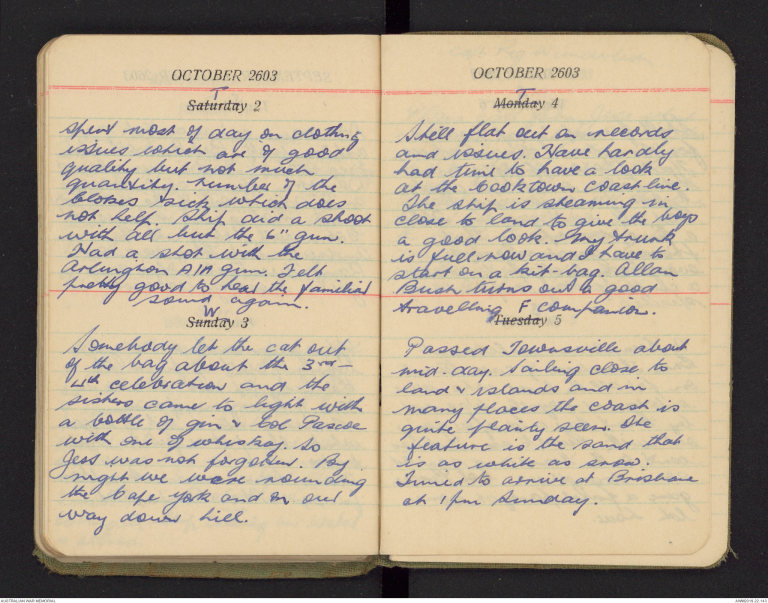 OCTOBER 2603
T
Saturday 2
spent most of day on clothing
issues which are of good
quality but not much
quantity. Number of the
blokes sick which does
not help. Ship did a shoot
with all but the 6" gun.
Had a shot with the
Arlington A/A gun. Felt
pretty good to hear the familiar
sound again.
W
Sunday 3
Somebody let the cat out
of the bag about the 3rd –
4th celebration and the
sisters came to light with
a bottle of gin & Col Pascoe
with one of whiskey. So
Jess was not forgotten. By
night we were rounding
the Cape York and on our
way down hill.
OCTOBER 2603
T
Monday 4
Still flat out on records
and issues. Have hardly
had time to have a look
at the Cooktown coast line.
The ship is steaming in
close to land to give the boys
a good look. My trunk
is full now and I have to
start on a kit-bag. Allan
Bush turns out a good
travelling companion.
F
Tuesday 5
Passed Townsville about
mid-day. Sailing close to
land & islands and in
many places the coast is
quite plainly seen. The
feature is the sand that
is as white as snow.
Timed to arrive at Brisbane
at 1pm Sunday.
AUSTRALIAN WAR MEMORIAL